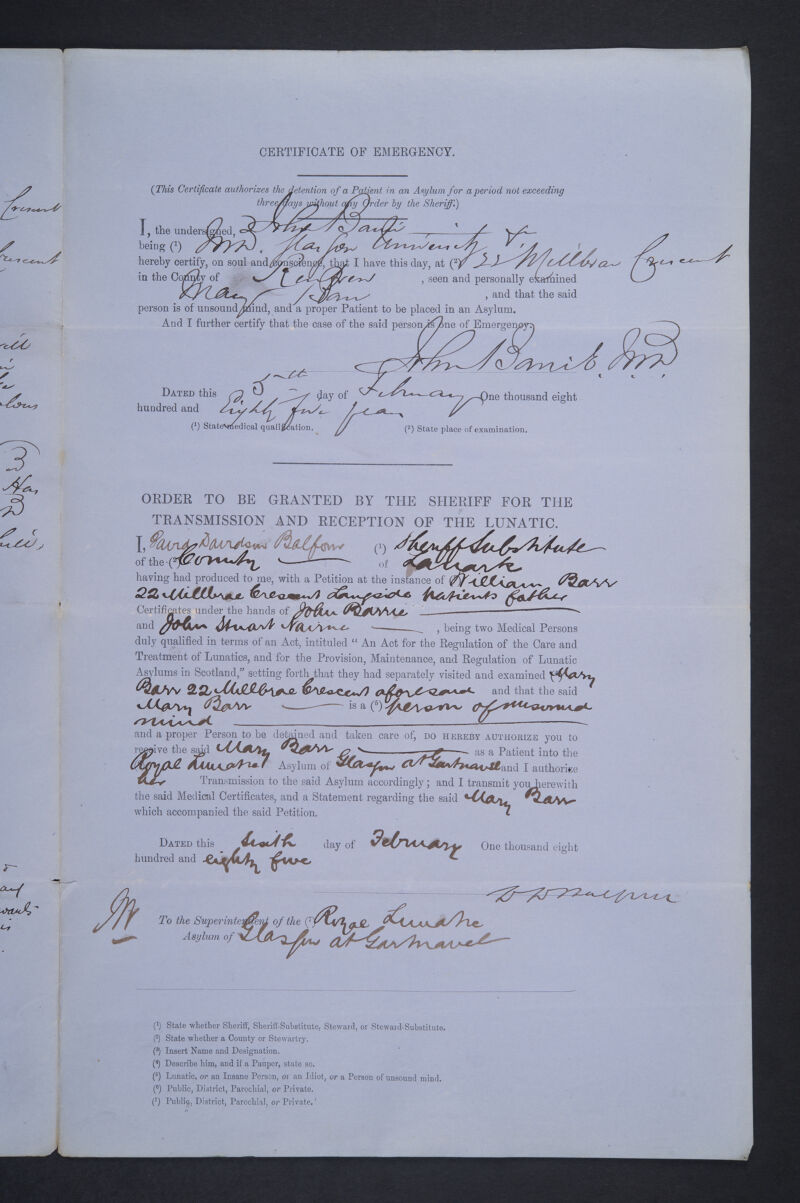 CERTIFICATE OF EMERGENCY.
(This Certificate authorizes the detention of a Patient in an Asylum for a period not exceeding
three days without any Order by the Sheriff.)
I, the undersigned, John Barrie
being (¹) M.D. Glasgow University
hereby certify, on soul and conscience, that I have this day, at (²) 22 Millbrae Crescent
in the County of Renfrew, seen and personally examined
Mary Barr, and that the said
person is of unsound mind, and a proper Patient to be placed in an Asylum.
And I further certify that the case of the said person is one of Emergency.
John Barrie. M.D.
DATED this 5th day of February One thousand eight
hundred and Eighty five
(¹) State medical qualification. (²) State place of examination.
ORDER TO BE GRANTED BY THE SHERIFF FOR THE
TRANSMISSION AND RECEPTION OF THE LUNATIC.
I, David Davidson Balfour (¹) Sheriff Substitute
of the (²) County of Lanark
having had produced to me, with a Petition at the instance of William Barr
22 Millbrae Crescent Langside Patients father
Certificates under the hands of John Barrie
and John Stuart Nairne, being two Medical Persons
duly qualified in terms of an Act, intituled “An Act for the Regulation of the Care and
Treatment of Lunatics, and for the Provision, Maintenance, and Regulation of Lunatic
Asylums in Scotland,” setting forth that they had separately visited and examined Mary
Barr 22 Millbrae Crescent aforesaid and that the said
Mary Barr is a (⁵) person of unsound
mind
and a proper Person to be detained and taken care of, DO HEREBY AUTHORIZE you to
receive the said Mary Barr as a Patient into the
Royal Lunatic Asylum of Glasgow at Gartnavel and I authorize
her Transmission to the said Asylum accordingly; and I transmit you herewith
the said Medical Certificates, and a Statement regarding the said Mary Barr
which accompanied the said Petition.
DATED this Sixth day of February One thousand eight
hundred and eighty five
D D Balfour
To the Superintendent of the (⁷) Royal Lunatic
Asylum of Glasgow at Gartnavel
(¹) State whether Sheriff, Sheriff-Substitute, Steward, or Steward-Substitute.
(²) State whether a County or Stewartry.
(³) Insert Name and Designation.
(⁴) Describe him, and if a Pauper, state so.
(⁵) Lunatic, or an Insane Person, or an Idiot, or a Person of unsound mind.
(⁶) Public, District, Parochial, or Private.
(⁷) Public, District, Parochial, or Private.